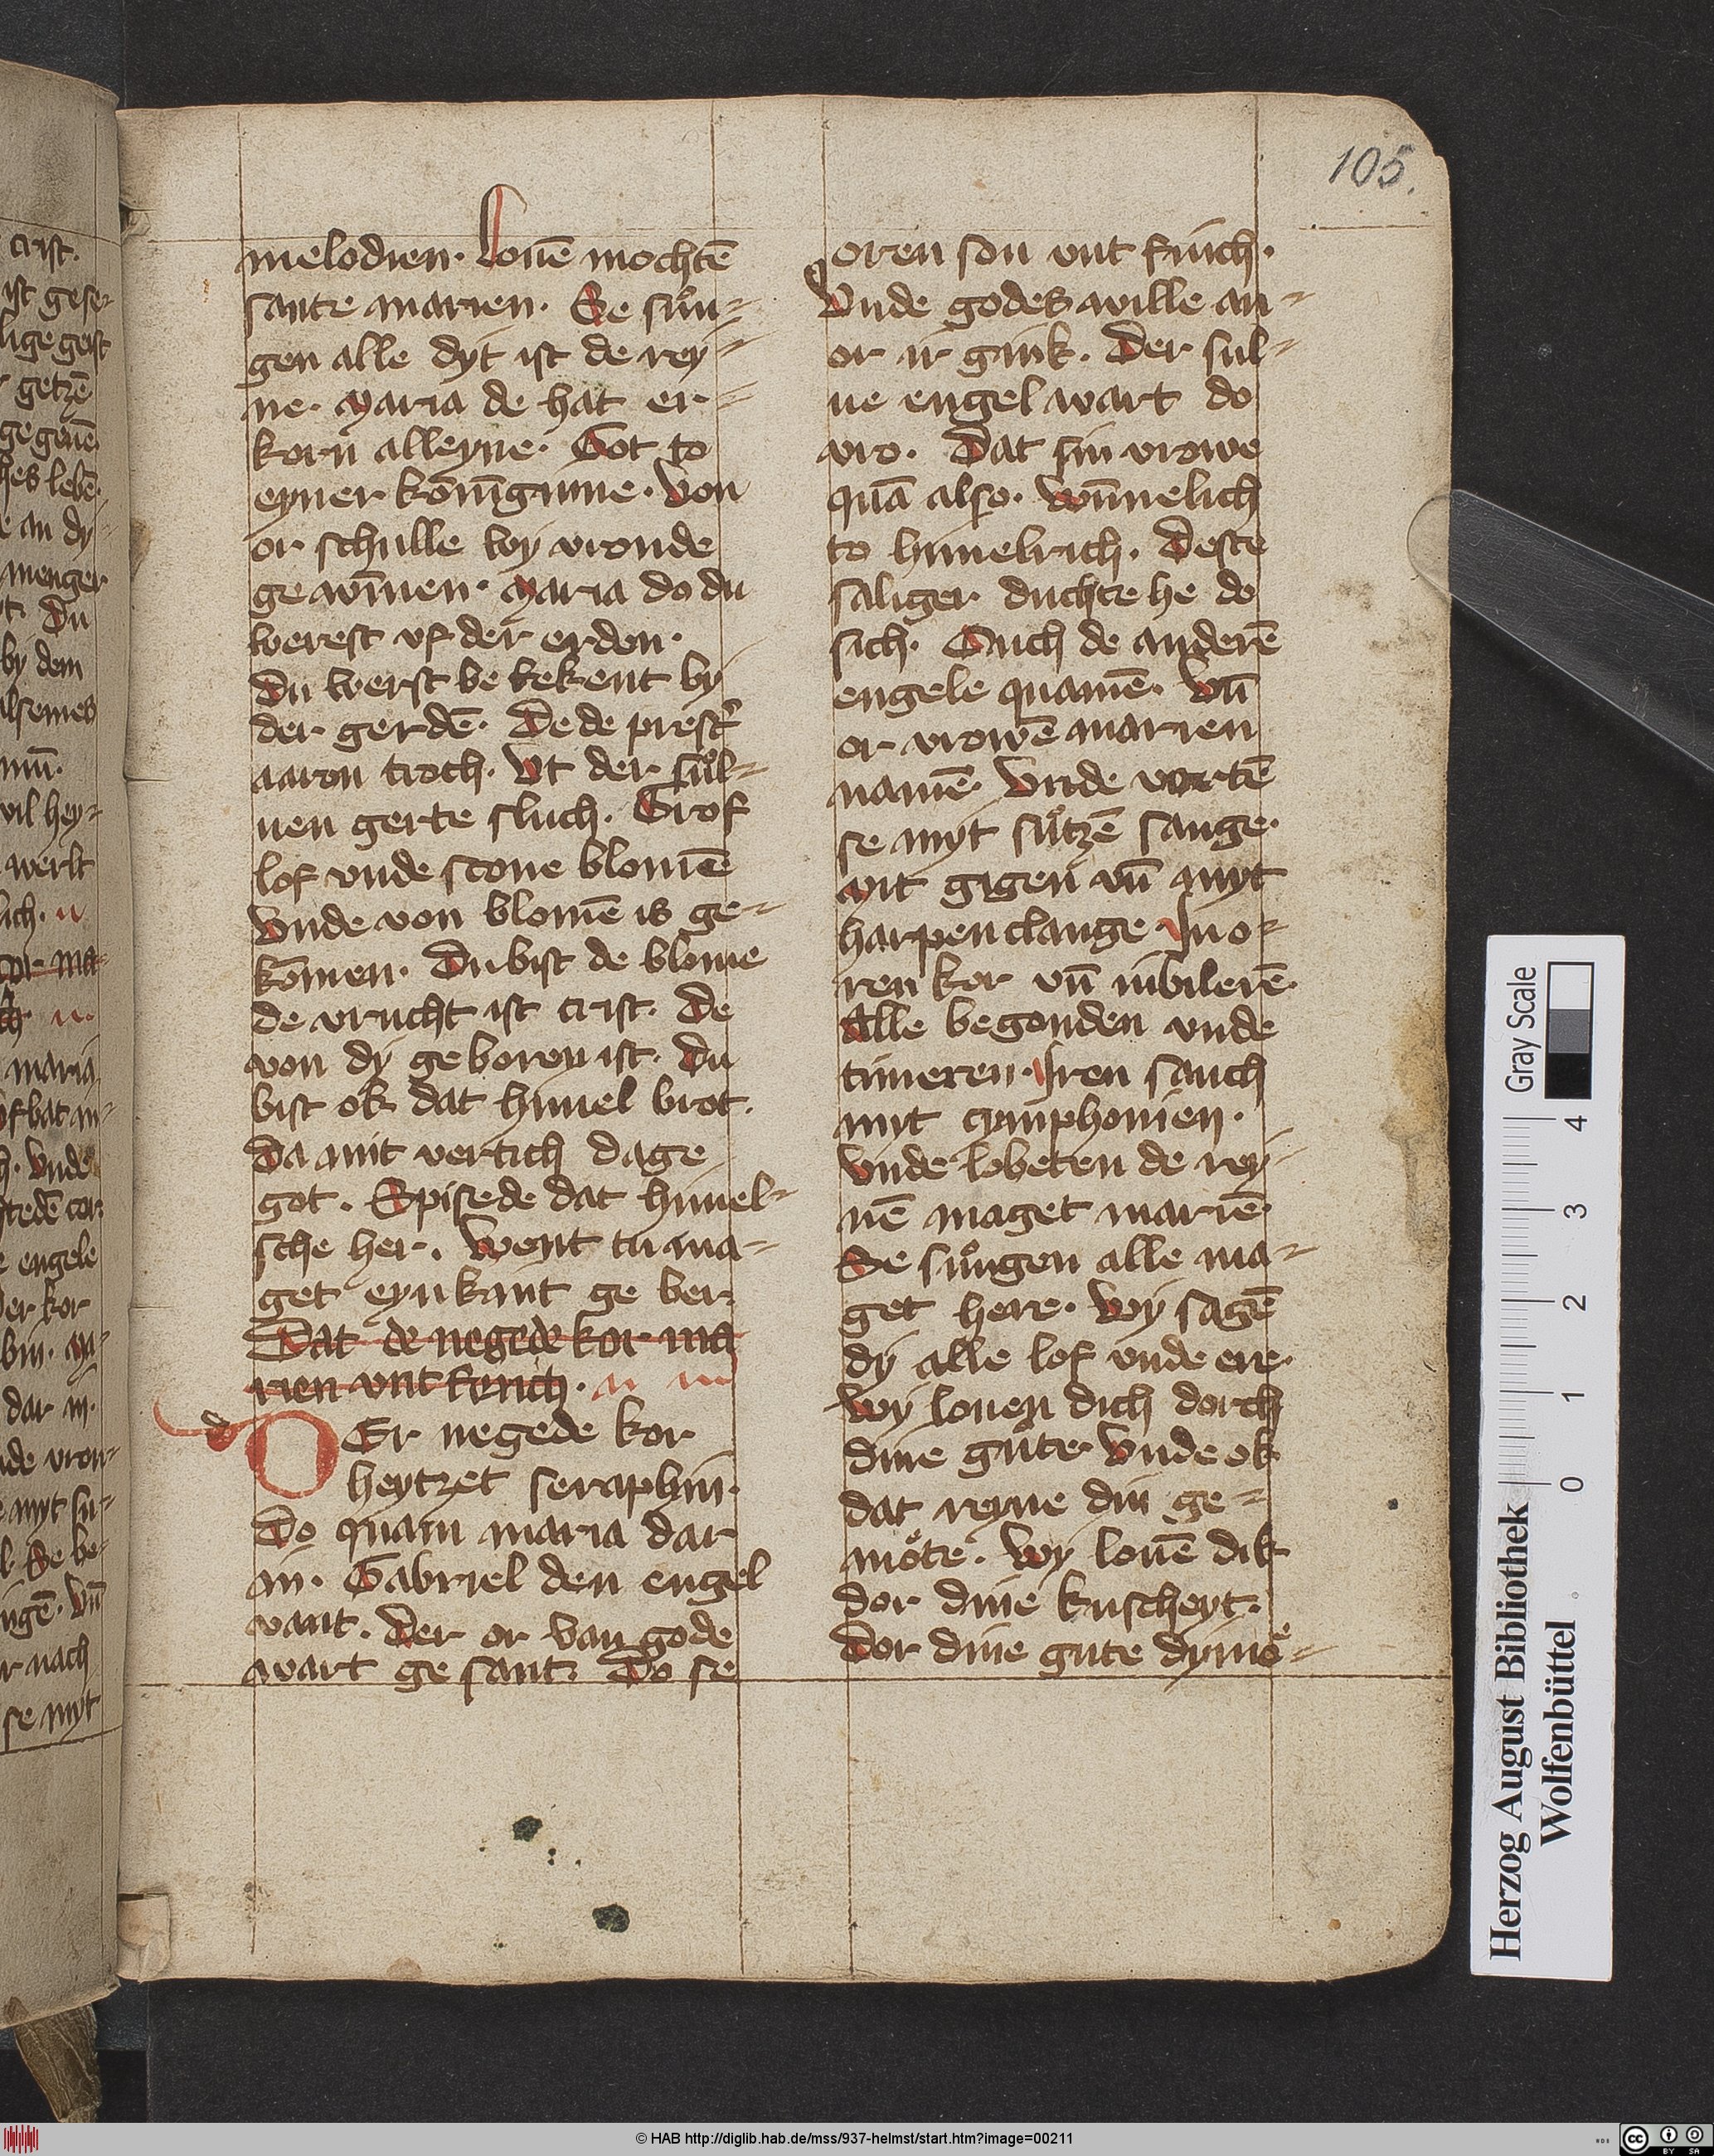 105.
melodien. Louē mochtē
sante marien. Se sůn-
gen alle dyt ist de rey-
ne. Maria de hat er-
korn alleyne. Got to
eyner kōnīginne. Von
or schulle wy vronde
gewīnen. Maria do du
werest vf der erden.
Du werst be kekent by
der gerdē. De de prestˀ
aaron troch. Vt der sůl-
uen gerte sluch. Grof
lof vnde scone blomē
Vnde von blomē is ge-
kōmen. Du bist de blome
de vrucht ist crist. De
von dy geboren ist. Du
bist ok dat himel brot.
Da mit vertich dage
got. Spisede dat himel-
sche her. Went tu ma-
get eyn kant ge ber.
Dat de negede kor ma
rien vnt ferich.
DEr negede kor
heytzet seraphin.
Do quam maria dar
in. Gabriel den engel
vant. Der or van gode
wart ge sant. Do se
oren son vnt finch.
Vnde godes wille an
or ir gink. Der sul-
ue engel wart do
vro. Dat sin vrowe
quā also. Wūnelich
to himelrich. Deste
saliger duchte he do
sich. Ouch de anderē
engele quamē. Vn̄
or vrowē marien
namē. Vnde vortē
se myt sůtzē sange.
Mit gigen vn̄ myt
harpen clange In o-
ren kor vn̄ iubilerē.
Alle begonden vnde
tinieren. Iren sanch
mit cymphonien.
Vnde lobeten de rey-
nē maget mariē.
Se sůngen alle ma-
get here. Wy sagē
dy alle lof vnde ere.
Wy louen dich dorch
dine gůte. Vnde ok
dat reyne din ge-
mǒte. Wy louē dik
dor dine kuscheyt.
Dor dine gute dymǒ-
Gray Scale
4 3 2 1 0
Herzog August Bibliothek
Wolfenbüttel
© HAB http://diglib.hab.de/mss/937-helmst/start.htm?image=00211